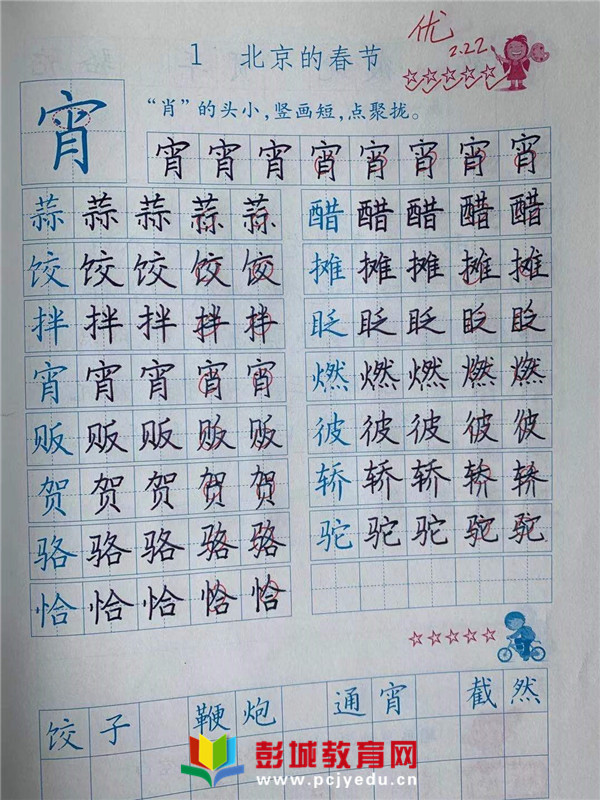 优
2.22
1 北京的春节
宵
“肖”的头小,竖画短,点聚拢。
宵宵宵宵宵宵宵宵
蒜蒜蒜蒜蒜 醋醋醋醋醋
饺饺饺饺饺 摊摊摊摊摊
拌拌拌拌拌 眨眨眨眨眨
宵宵宵宵宵 燃燃燃燃燃
贩贩贩贩贩 彼彼彼彼彼
贺贺贺贺贺 轿轿轿轿轿
骆骆骆骆骆 驼驼驼驼驼
恰恰恰恰恰
饺子 鞭炮 通宵 截然
彭城教育网
www.pcjyedu.cn